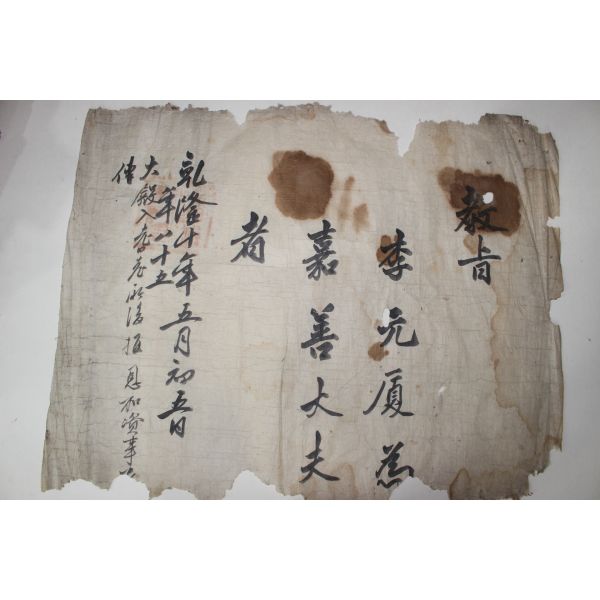 教旨
李元厦爲
嘉善大夫
者
乾隆十年五月初五日
年八十五
大殿入耆老所後推恩加資事
傳